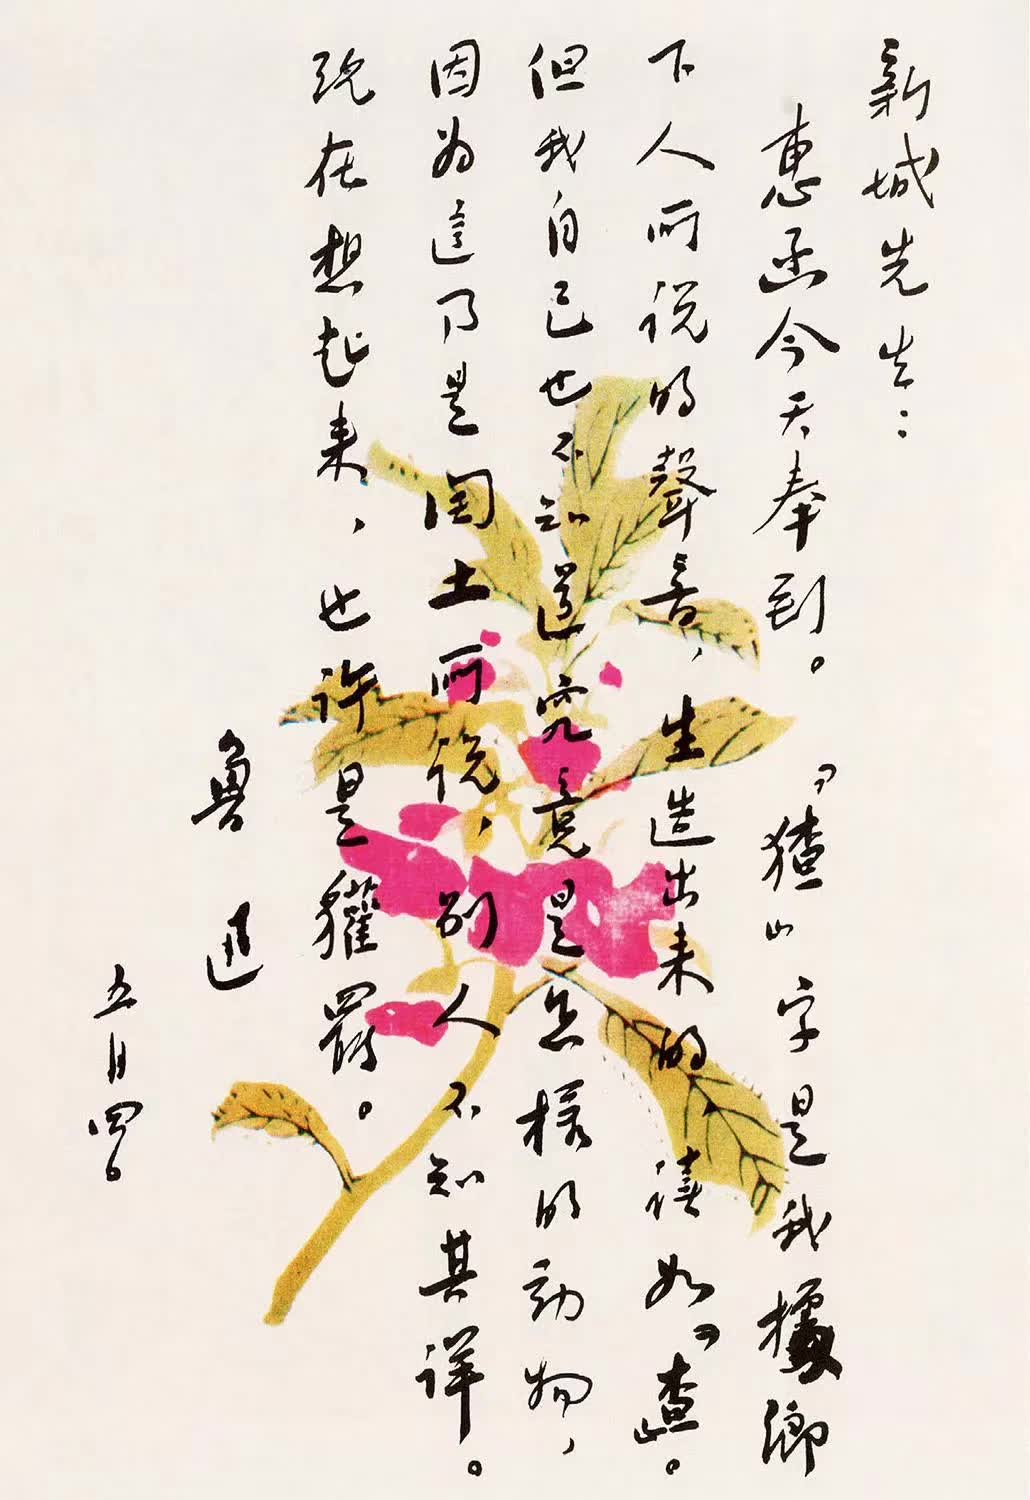 新城先生:
惠函今天奉到。『猹』字是我據鄉
下人所说的聲音,生造出来的,讀如『查』。
但我自己也不知道究竟是怎樣的動物,
因為這乃是闰土所说,别人不知其详。
现在想起来,也许是獾罢。
魯迅
五月四日